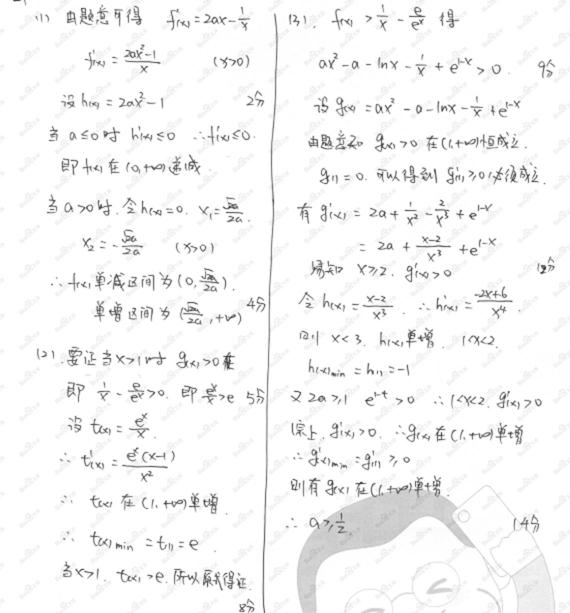 (1) 由题意可得 f'(x)=2ax-1/x
f'(x)=(2ax²-1)/x (x>0)
设 h(x)=2ax²-1 2分
当 a≤0时 h(x)≤0 ∴f'(x)≤0.
即 f(x) 在 (0,+∞) 递减
当 a>0时,令 h(x)=0. x₁=√(2a)/2a.
x₂=-√(2a)/2a (x>0)
∴ f(x) 单减区间为 (0, √(2a)/2a).
单增区间为 (√(2a)/2a, +∞) 4分
(2). 要证当 x>1时 g(x)>0 在
即 1/x - e/eˣ>0. 即 eˣ/x>e 5分
设 t(x)=eˣ/x.
∴ t'(x)=eˣ(x-1)/x²
∴ t(x) 在 (1,+∞) 单增.
∴ t(x)min =t(1)=e.
当 x>1. t(x)>e. 所以原式得证.
8分
(3). f(x) > 1/x - e/eˣ 得
ax²-a-lnx-1/x+e^(1-x)>0. 9分
设 g(x)=ax²-a-lnx-1/x+e^(1-x)
由题意知 g(x)>0 在 (1,+∞) 恒成立.
g(1)=0. 所以得到 g'(1)≥0必须成立.
有 g''(x)=2a+1/x²-2/x³+e^(1-x)
=2a+(x-2)/x³+e^(1-x)
易知 x≥2. g''(x)>0 12分
令 h(x)=(x-2)/x³. ∴h'(x)=(-2x+6)/x⁴.
则 x<3. h(x)单增. 1<x<2.
h(x)min=h(1)=-1
又 2a≥1 e^(1-x)>0 ∴1<x<2. g''(x)>0
综上, g''(x)>0. ∴g'(x)在(1,+∞)单增
∴ g'(x)min =g'(1)≥0
则有 g(x) 在(1,+∞)单增.
∴ a≥1/2. 14分